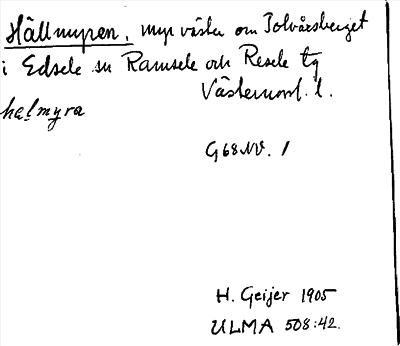 Hällmyren, myr väster om Tolvårsberget
i Edsele sn Ramsele och Resele tg
Västernorrl. l.
hal̥myra
G68NV. 1
H. Geijer 1905
ULMA 508:42.